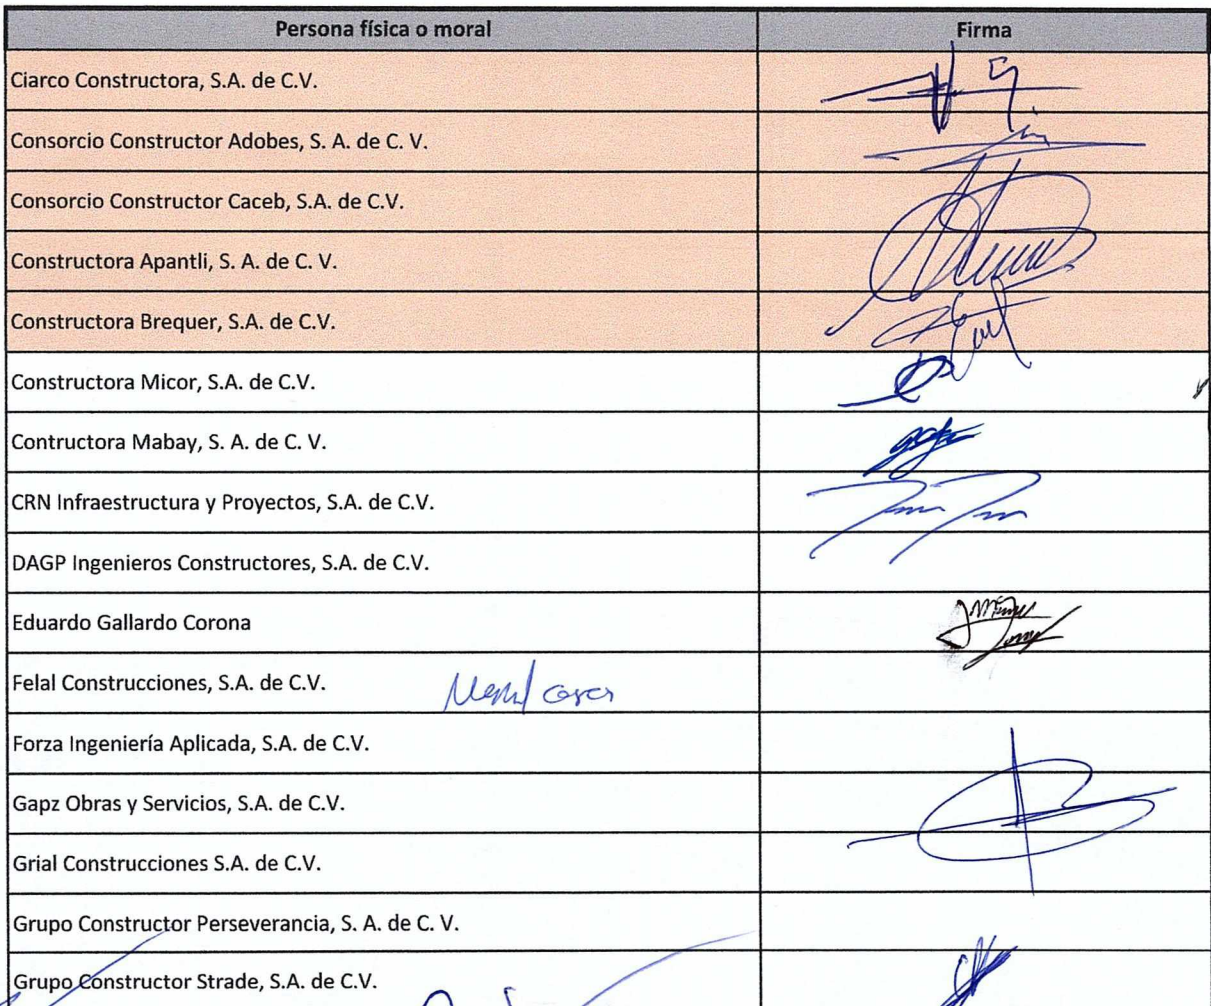 Persona física o moral Firma
Ciarco Constructora, S.A. de C.V.
Consorcio Constructor Adobes, S. A. de C. V.
Consorcio Constructor Caceb, S.A. de C.V.
Constructora Apantli, S. A. de C. V.
Constructora Brequer, S.A. de C.V.
Constructora Micor, S.A. de C.V.
Contructora Mabay, S. A. de C. V.
CRN Infraestructura y Proyectos, S.A. de C.V.
DAGP Ingenieros Constructores, S.A. de C.V.
Eduardo Gallardo Corona
Felal Construcciones, S.A. de C.V.
Forza Ingeniería Aplicada, S.A. de C.V.
Gapz Obras y Servicios, S.A. de C.V.
Grial Construcciones S.A. de C.V.
Grupo Constructor Perseverancia, S. A. de C. V.
Grupo Constructor Strade, S.A. de C.V.